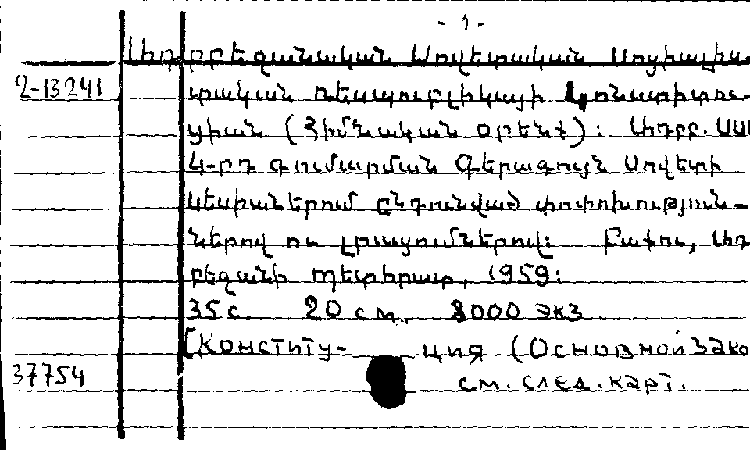 - 1 -
Ադրբեջանական Սովետական Սոցիալիս
2-13241 տական ռեսպուբլիկայի Կոնստիտու-
ցիան (Հիմնական օրենք): Ադրբ. ՍՍՌ
4-րդ գումարման Գերագույն Սովետի
սեսիաներում ընդունված փոփոխություն-
ներով ու լրացումներով: Բաքու, Ադր
բեջանի պետհրատ, 1959:
35 с. 20 см. 8000 экз
[Конститу- ция (Основной Зако
37754 см. след. карт.